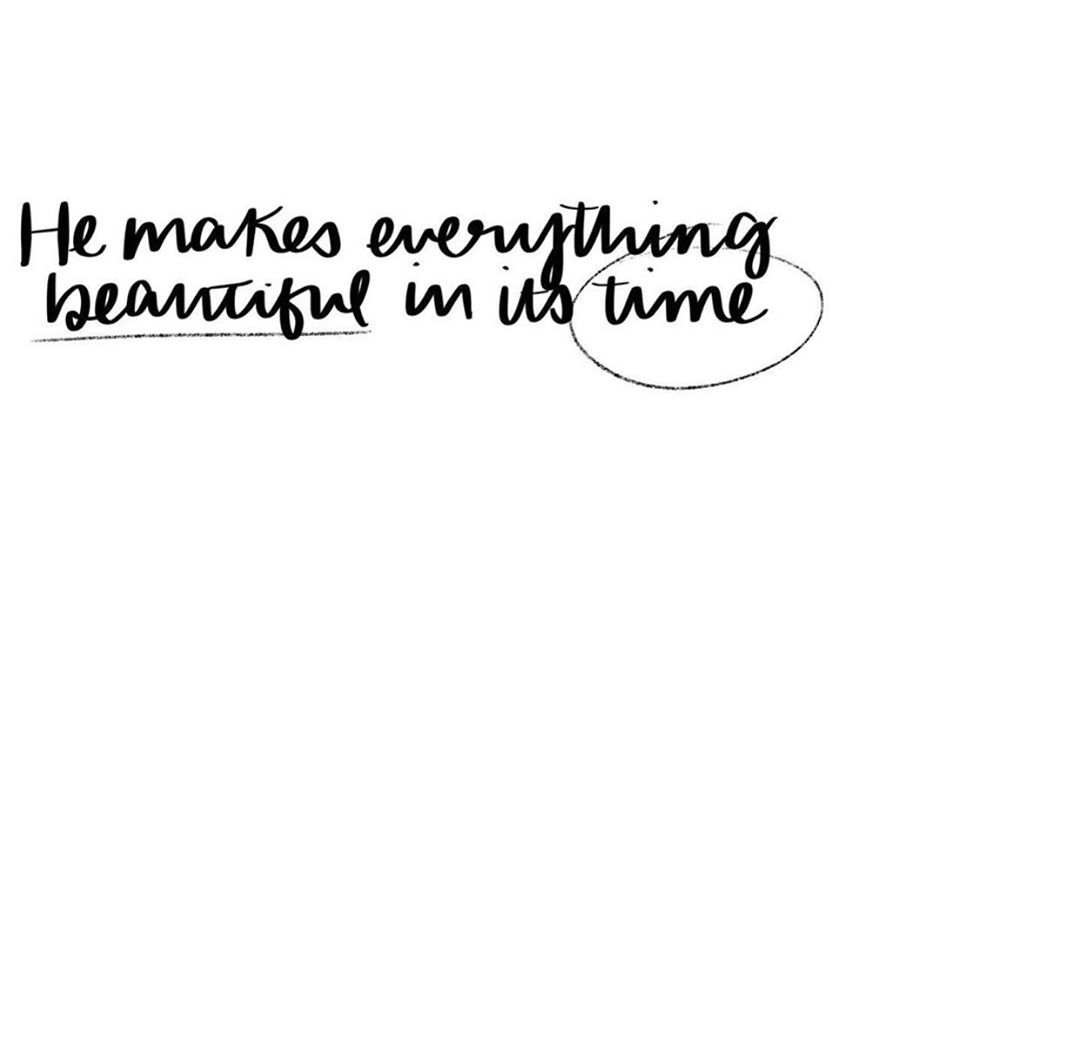 He makes everything
beautiful in its time